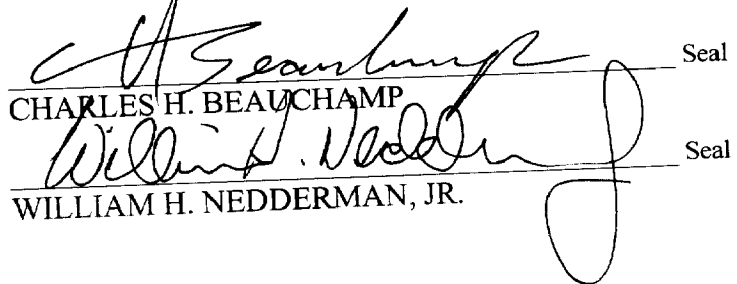 CH Beauchamp Seal
CHARLES H. BEAUCHAMP
William H. Nedderman Jr Seal
WILLIAM H. NEDDERMAN, JR.